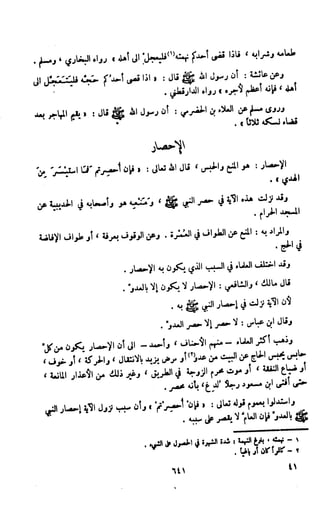 طعامه وشرابه ، فاذا قضى أحدكم نهمته (١) فليعجل الى أهله » رواه البخاري ، ومسلم .
وعن عائشة : أن رسول الله ﷺ قال : « اذا قضى أحدكم حجته فليتعجل الى
أهله ، فإنه أعظم لأجره » رواه الدارقطني .
وروى مسلم عن العلاء بن الحضرمي : أن رسول الله ﷺ قال : « يقيم المهاجر بعد
قضاء نسكه ثلاثا » .
الإحصار
الإحصار : هو المنع والحبس ، قال الله تعالى : « فإن أحصرتم فما استيسر من
الهدي » .
وقد نزلت هذه الآية في حصر النبي ﷺ ، ومنعه هو وأصحابه في الحديبية عن
المسجد الحرام .
والمراد به : المنع عن الطواف في العمرة . وعن الوقوف بعرفة ، أو طواف الإفاضة
في الحج .
وقد اختلف العلماء في السبب الذي يكون به الإحصار .
قال مالك ، والشافعي : الإحصار لا يكون إلا بالعدو .
لأن الآية نزلت في إحصار النبي ﷺ به .
وقال ابن عباس : لا حصر إلا حصر العدو .
وذهب أكثر العلماء – منهم الأحناف ، وأحمد – الى أن الإحصار يكون من كل
حابس يحبس الحاج عن البيت من عدو (٢) أو مرض يزيد بالانتقال ، والحركة ، أو خوف ،
أو ضياع النفقة ، أو موت محرم الزوجة في الطريق ، وغير ذلك من الأعذار المانعة ،
حتى أفتى ابن مسعود رجلا لدغ ، بأنه محصر .
واستدلوا بعموم قوله تعالى : « فإن أحصرتم » وأن سبب نزول الآية إحصار النبي
ﷺ بالعدو فإن العام لا يقصر على سببه .
١ – نهمته : بلوغ النهمة : شدة الشهوة في الحصول على الشيء .
٢ – كافرا كان أو باغيا .
٦٤١
٤١